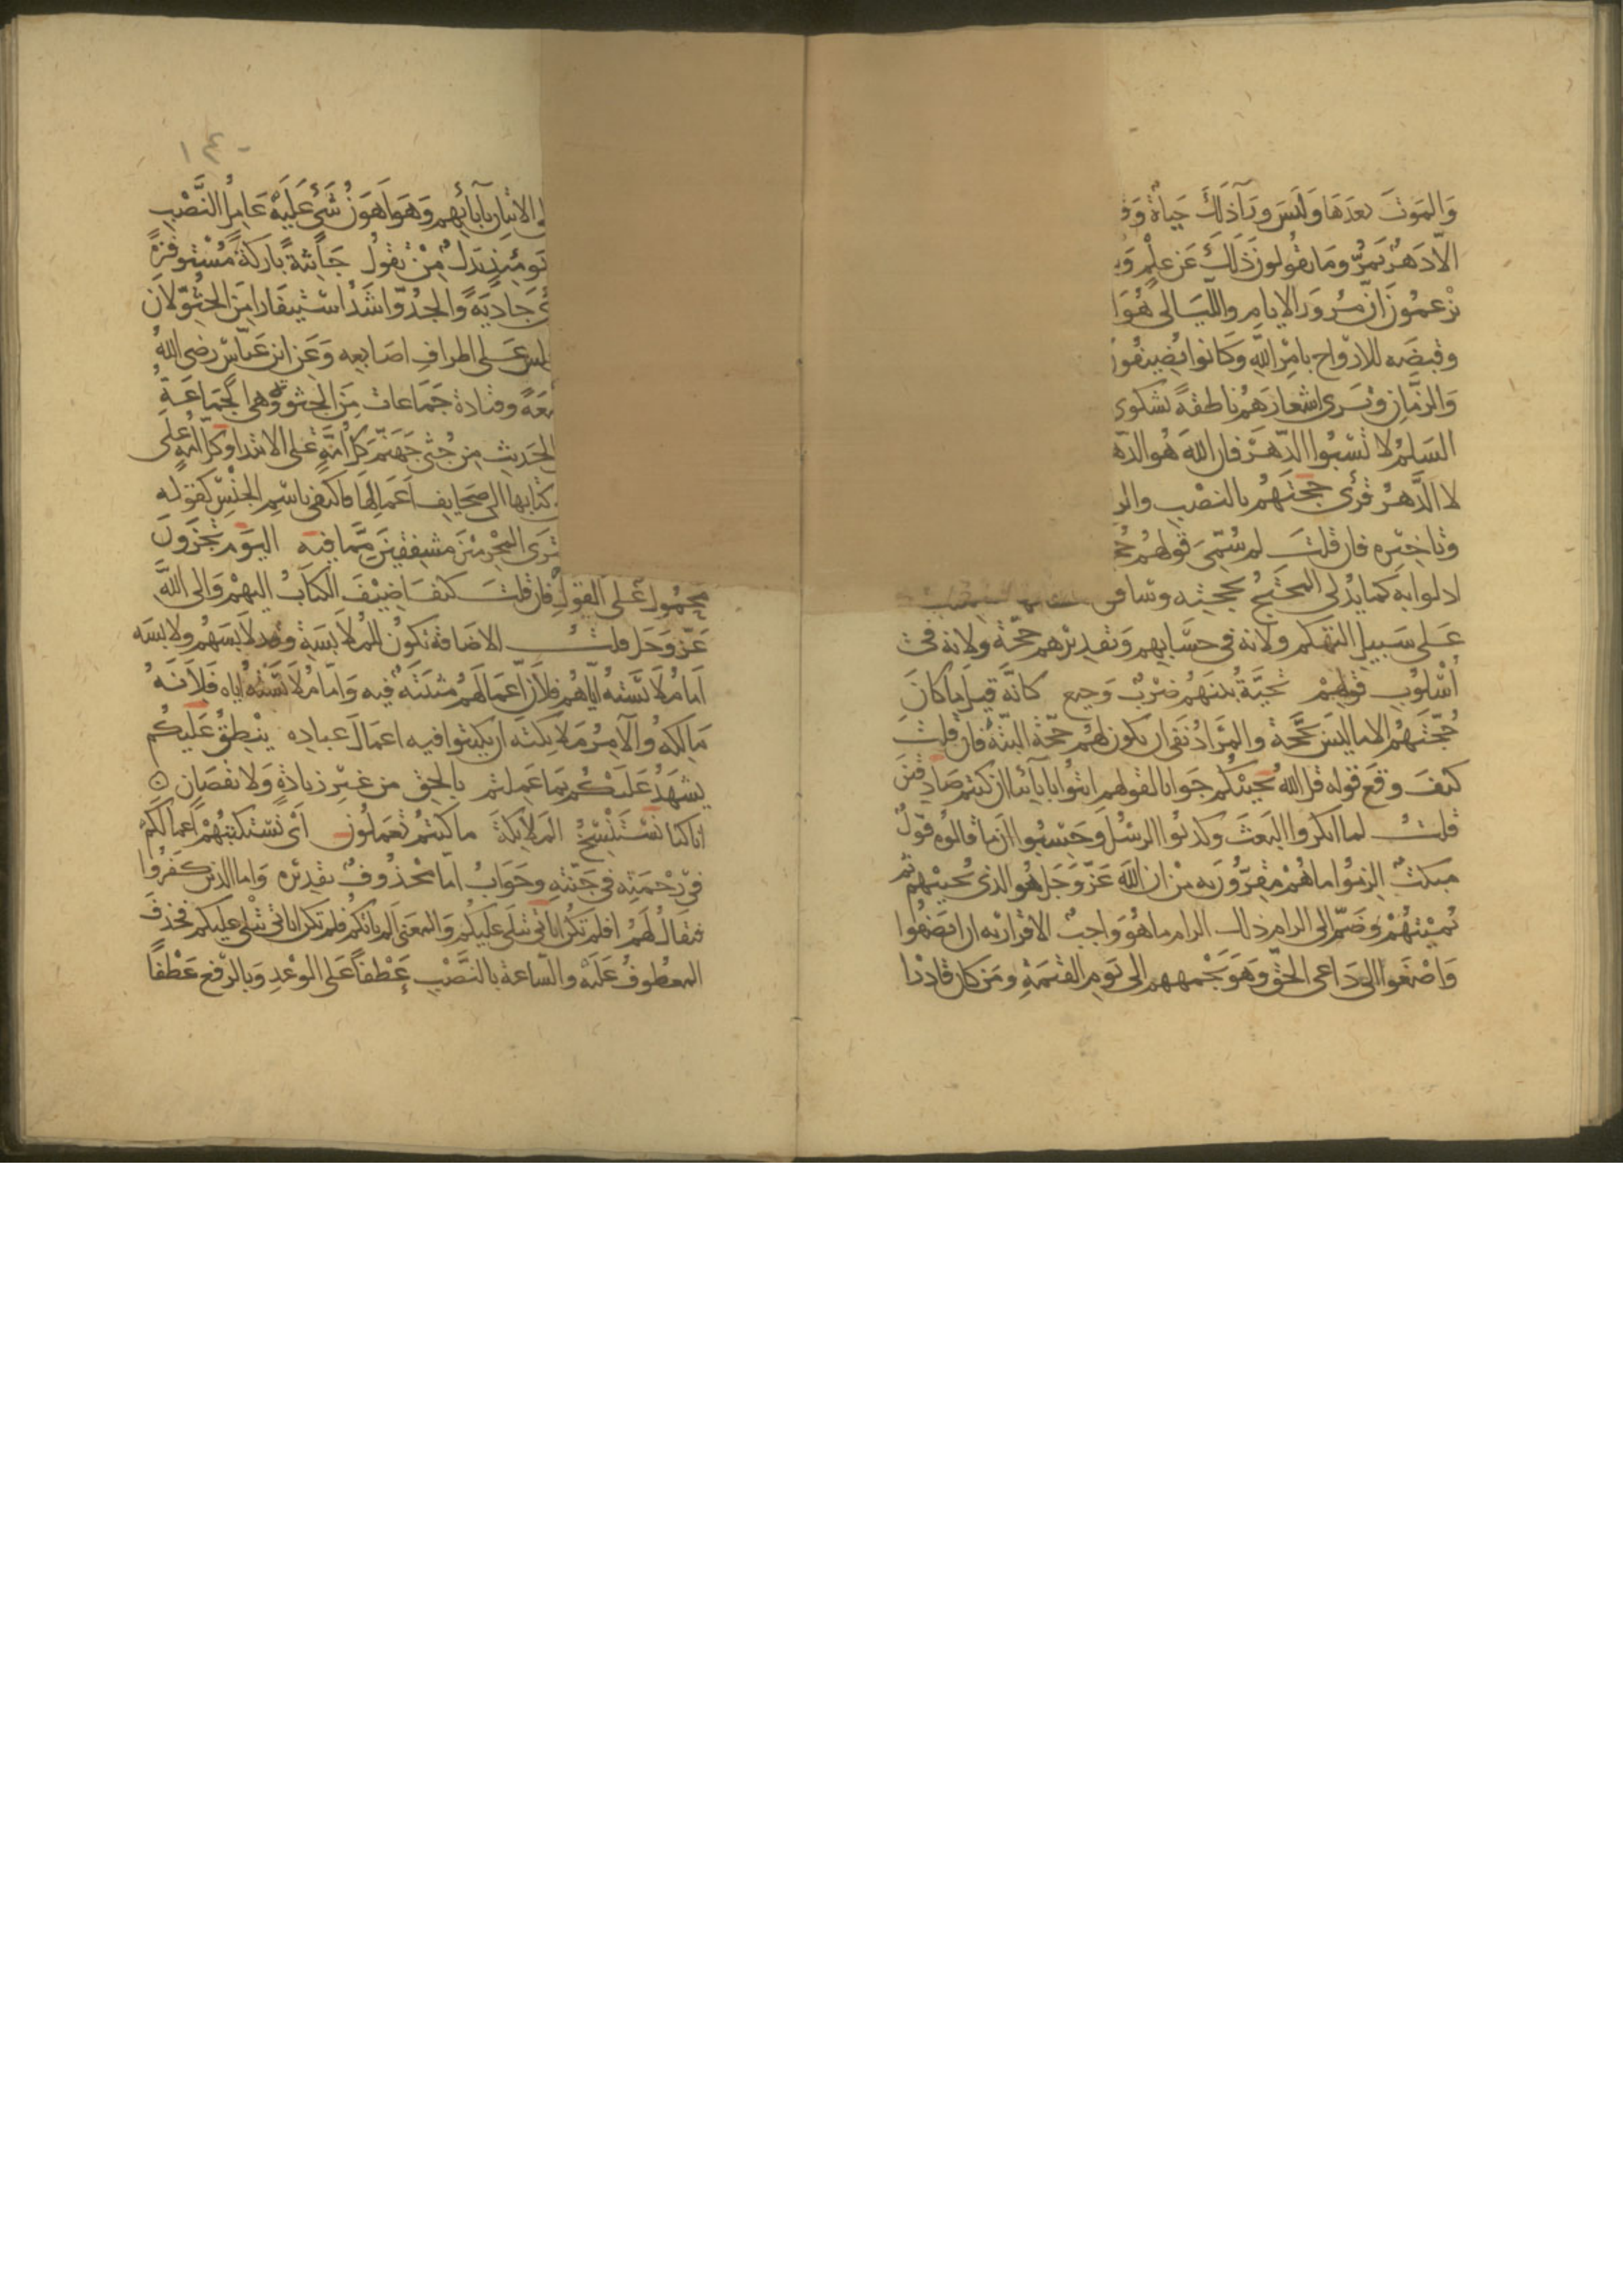 والموت بعدها وليس ورآ ذلك حياة
الا دهر يمر وما يقولون ذلك عن علم
يزعمون ان مرور الايام والليالى هو
وقبضه للارواح بامر الله وكانوا يضيفون
والزمان وترى اشعارهم ناطقة بشكوى
السلم لا تسبوا الدهر فان الله هو
لا الدهر قرئ حجتهم بالنصب
وتاخيره فان قلت لم سمى قولهم
ادلوا به كما يدلى المحتج بحجته
على سبيل التهكم ولانه فى حسابهم وتقديرهم حجة ولانه فى
اسلوب قولهم تحية بينهم ضرب وجيع كانه قيل ما كان
حجتهم الا ما ليس بحجة والمراد نفى ان يكون لهم حجة البتة فان قلت
كيف وقع قوله قل الله يحييكم جوابا لقولهم ائتوا بابآئنا ان كنتم صادقين
قلت لما انكروا البعث وكذبوا الرسل وحسبوا ان ما قالوه قول
مبكت الزموا ما هم مقرون به من ان الله عز وجل هو الذى يحييهم ثم
يميتهم وضم الى الزام ذلك الزام ما هو واجب الاقرار به ان انصفوا
واصغوا الى داعى الحق وهو جمعهم الى يوم القيمة ومن كان قادرا
١٤٠
الاتيان بآبائهم وهو اهون شئ عليه عامل النصب
يومئذ بدل من تقول جاثية باركة مستوفزة
جاذية والجذو اشد استيفازا من الجثو لان
على اطراف اصابعه وعن ابن عباس رضى الله
وقتادة جماعات من الجثوة وهى الجماعة
الحديث من جثى جهنم كل امة على الابتدا وكل امة على
كتابها الى صحايف اعمالها فاكتفى باسم الجنس كقوله
ترى المجرمين مشفقين مما فيه اليوم تجزون
محمول على القول فان قلت كيف اضيف الكتاب اليهم والى الله
عز وجل قلت الاضافة تكون للملابسة وقد لابسهم ولابسه
اما ملابسته اياهم فلان اعمالهم مثبتة فيه واما ملابسته اياه فلانه
مالكه والآمر ملايكته ان يكتبوا فيه اعمال عباده ينطق عليكم
يشهد عليكم بما عملتم بالحق من غير زيادة ولا نقصان
انا كنا نستنسخ الملايكة ما كنتم تعملون اى نستكتبهم اعمالكم
فى رحمته فى جنته وجواب اما محذوف تقديره واما الذين كفروا
فيقال لهم افلم تكن اياتى تتلى عليكم والمعنى الم ياتكم فلم تكن اياتى تتلى عليكم فحذف
المعطوف عليه والساعة بالنصب عطفا على الوعد وبالرفع عطفا